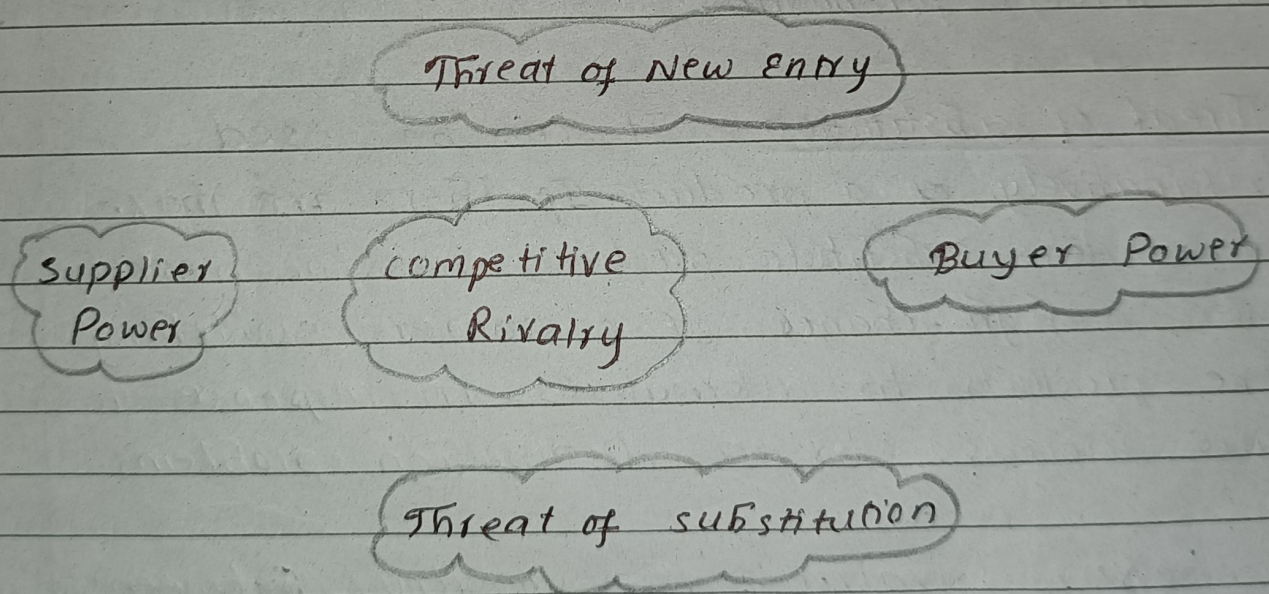 Threat of New Entry
Supplier
Power
competitive
Rivalry
Buyer Power
Threat of substitution